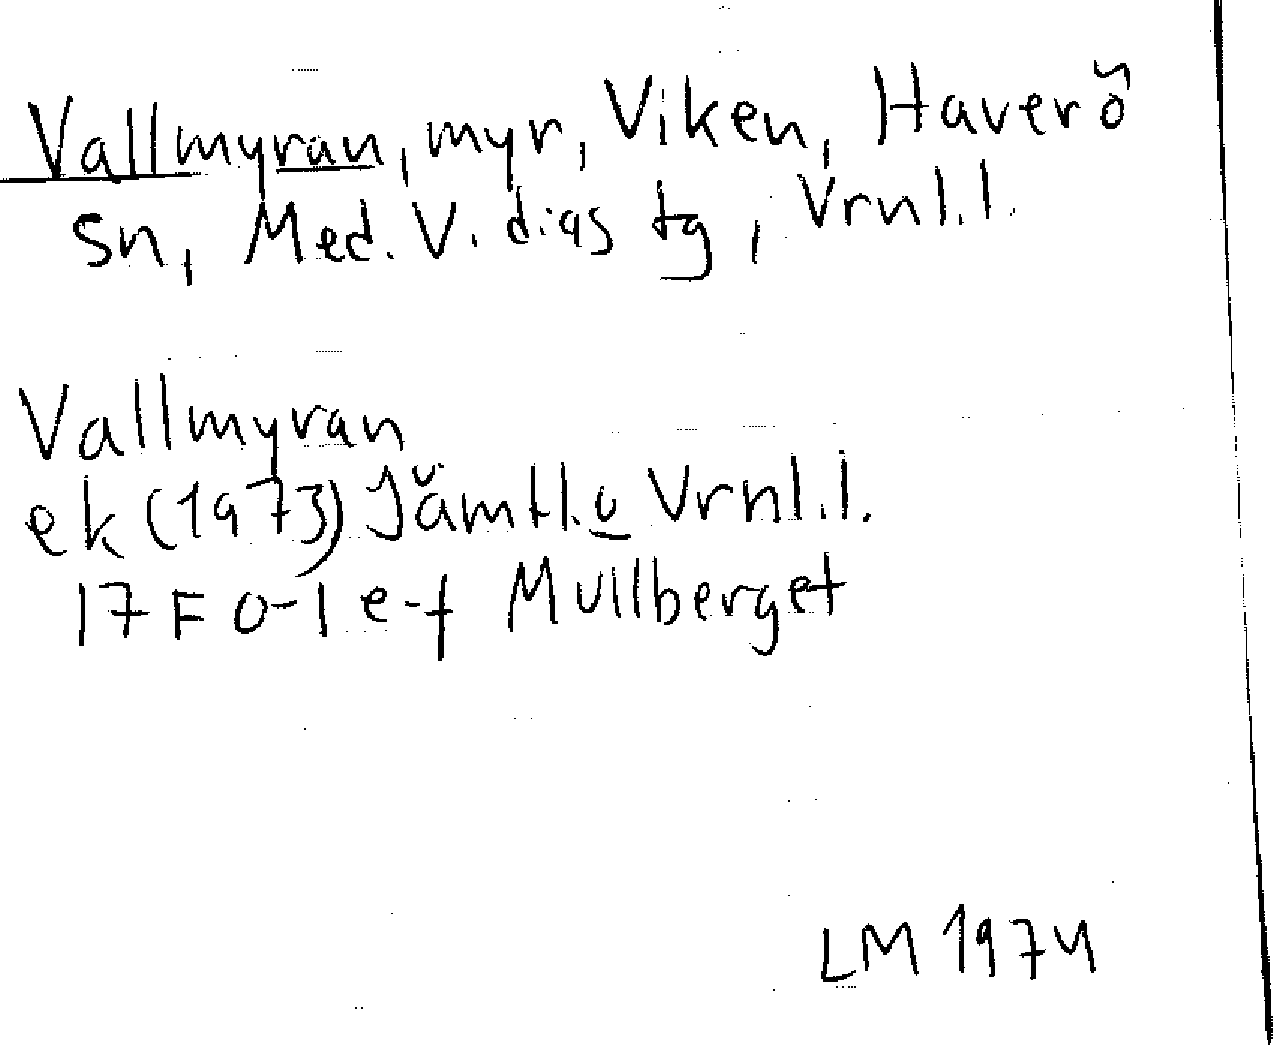 Vallmyran, myr, Viken, Haverö
sn, Med. V. d:as tg, Vrnl.l.
Vallmyran
ek (1973) Jämtl. o Vrnl.l.
17F 0-1 e-f Mullberget
LM 1974